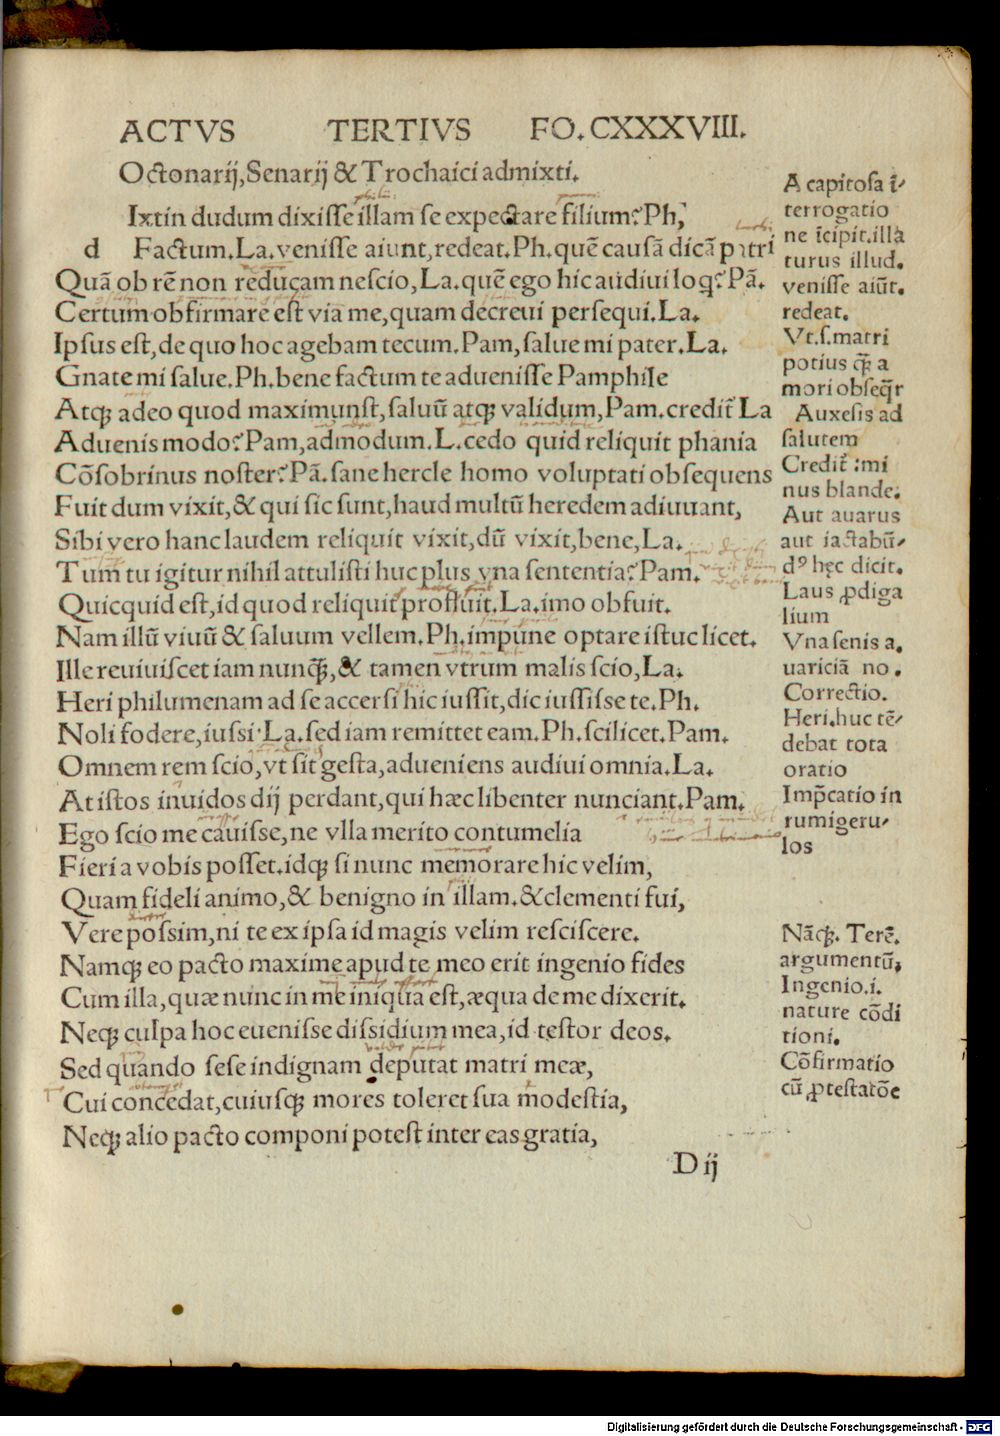 ACTVS TERTIVS FO. CXXXVIII.
Octonarij, Senarij & Trochaici admixti.
Ixtin dudum dixisse illam se expectare filium? Ph,
d Factum. La. venisse aiunt, redeat. Ph. quē causā dicā patri
Quā ob rē non reducam nescio, La. quē ego hic audiui loq? Pā.
Certum obfirmare est viā me, quam decreui persequi. La.
Ipsus est, de quo hoc agebam tecum. Pam, salue mi pater. La.
Gnate mi salue. Ph. bene factum te aduenisse Pamphile
Atq; adeo quod maximunst, saluū atq; validum, Pam. credit̄ La
Aduenis modo? Pam, admodum. L. cedo quid reliquit phania
Cōsobrinus noster? Pā. sane hercle homo voluptati obsequens
Fuit dum vixit, & qui sic sunt, haud multū heredem adiuuant,
Sibi vero hanc laudem reliquit vixit, dū vixit, bene, La.
Tum tu igitur nihil attulisti huc plus vna sententia? Pam.
Quicquid est, id quod reliquit profuit. La. imo obfuit.
Nam illū viuū & saluum vellem. Ph. impune optare istuc licet.
Ille reuiuiscet iam nunq̄, & tamen vtrum malis scio, La.
Heri philumenam ad se accersi hic iussit, dic iussisse te. Ph.
Noli fodere, iussi. La. sed iam remittet eam. Ph. scilicet. Pam.
Omnem rem scio, vt sit gesta, adueniens audiui omnia. La.
At istos inuidos dij perdant, qui hæc libenter nunciant. Pam.
Ego scio me cauisse, ne vlla merito contumelia
Fieri a vobis posset. idq; si nunc memorare hic velim,
Quam fideli animo, & benigno in illam. & clementi fui,
Vere possim, ni te ex ipsa id magis velim resciscere.
Namq; eo pacto maxime apud te meo erit ingenio fides
Cum illa, quæ nunc in me iniqua est, æqua de me dixerit.
Neq; culpa hoc euenisse dissidium mea, id testor deos.
Sed quando sese indignam deputat matri meæ,
Cui concedat, cuiusq; mores toleret sua modestia,
Neq; alio pacto componi potest inter eas gratia,
D ij
A capitosa ī-
terrogatio
ne īcipit. illā
turus illud.
venisse aiūt.
redeat.
Vt. s. matri
potius q̄ a
mori obseq̄r
Auxesis ad
salutem
Credit̄ : mi
nus blande.
Aut auarus
aut iactabū-
dꝰ hęc dicit.
Laus ꝓdiga
lium
Vna senis a.
uariciā no.
Correctio.
Heri. huc tē-
debat tota
oratio
Imp̄catio in
rumigeru-
los
Nāq;. Terē.
argumentū,
Ingenio. i.
nature cōdi
tioni.
Cōfirmatio
cū ꝓtestatōe
Digitalisierung gefördert durch die Deutsche Forschungsgemeinschaft - DFG